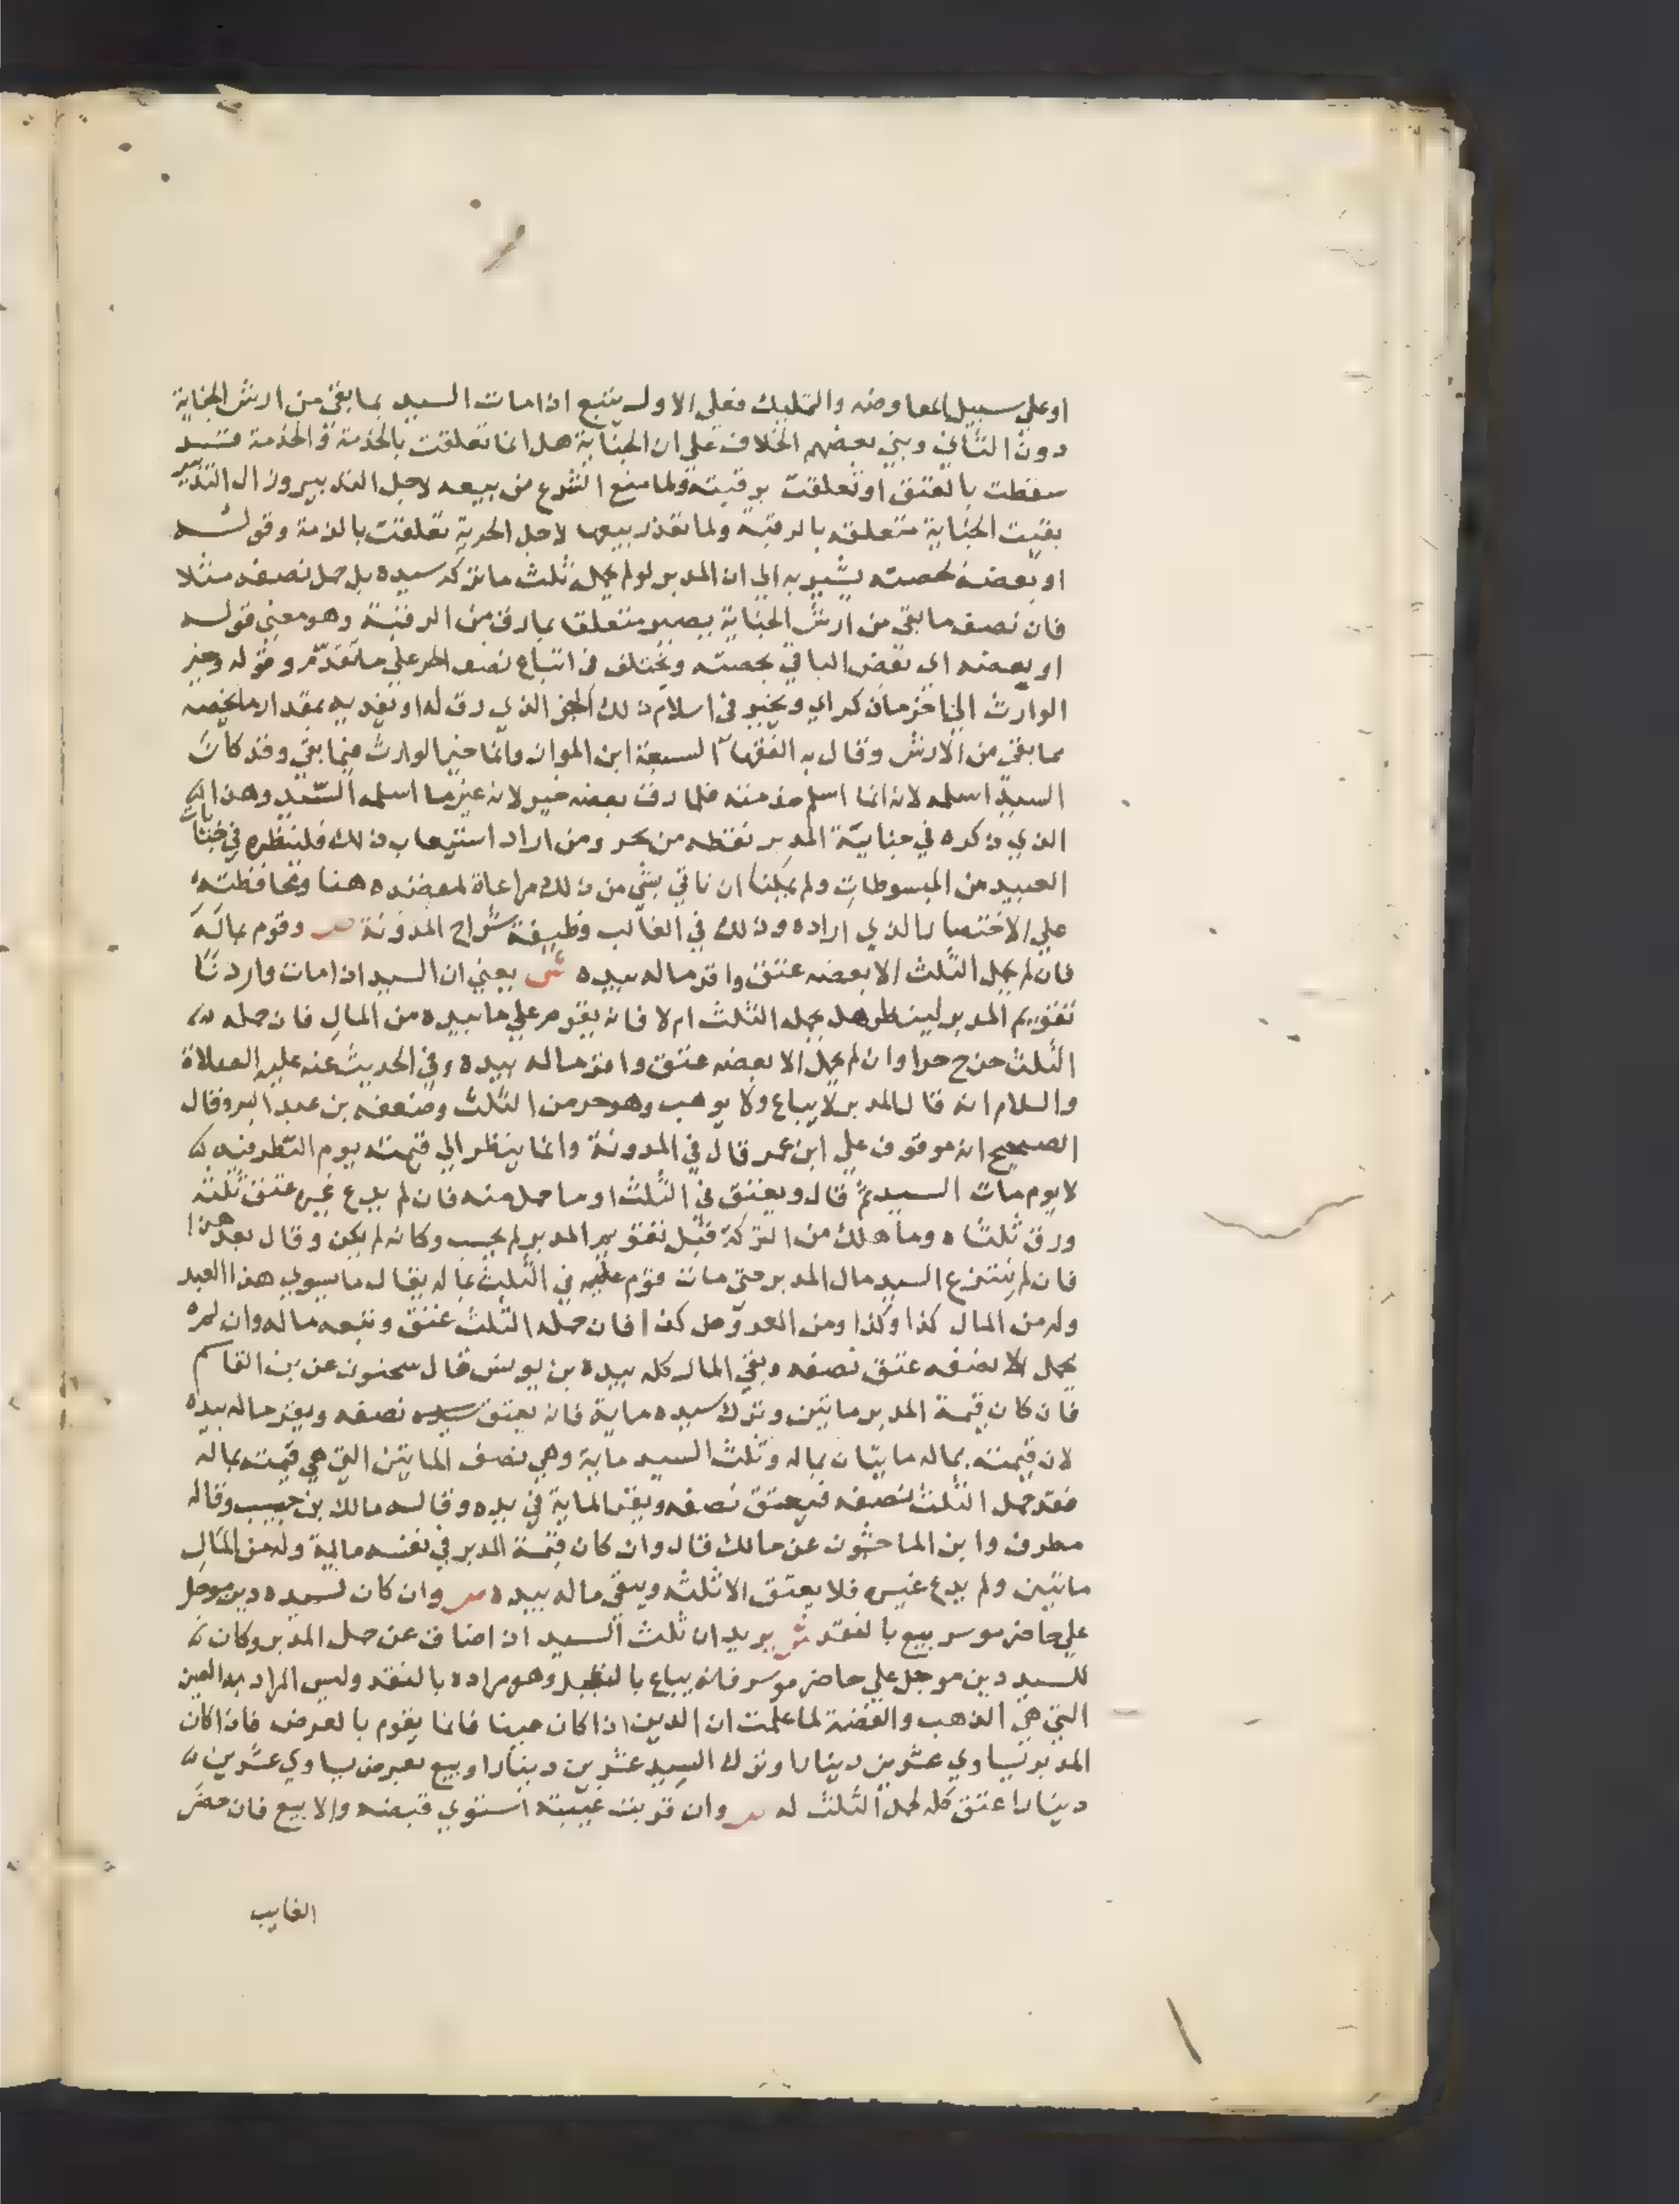 او على سبيل المعاوضه والتمليك فعلى الاول يتبع اذا مات السيد بما بقى من ارش الجناية
دون الثاني وبنى بعضهم الخلاف على ان الجناية هل انما تعلقت بالخدمة والخدمة قد
سقطت بالعتق او تعلقت برقبته ولما منع الشرع من بيعه لاجل التدبير وزال التدبير
بقيت الجناية متعلقه بالرقبة ولما تعذر بيعها لاجل الحرية تعلقت بالذمة وقوله
او بعضه بحصته يشير به الى ان المدبر لو لم يحمله ثلث ما تركه سيده بل حمل نصفه مثلا
فان نصف ما بقى من ارش الجناية يصير متعلقا بما رق من الرقبة وهو معنى قوله
او بعضه اى بعض الباقي بحصته ويختلف فى اتباع نصفه الحر على ما تقدم وقوله وخير
الوارث الى اخره كراي ويخير فى اسلام ذلك الجز الذي رق له او يفديه بمقدار ما يخصه
مما بقى من الارش وقال به الفقهاء السبعة ابن المواز وانما خير الوارث فيما بقى وقد كان
السيد اسلمه لانه انما اسلم خدمته فلما رق بعضه خير لانه غير ما اسلمه السيد وهذا
الذي ذكره في جناية المدبر نقطه من بحر ومن اراد استيعاب ذلك فلينظره في جنايات
العبيد من المبسوطات ولم يمكنا ان ناتي بشي من ذلك مراعاة لمقصده هنا ومحافظته
على الاختصار الذي اراده وذلك في الغالب وظيفة شراح المدونة ص وقوم بماله
فان لم يحمل الثلث الا بعضه عتق واقر ماله بيده ش يعني ان السيد اذا مات واردنا
تقويم المدبر لينظر هل يحمله الثلث ام لا فانه يقوم على ما بيده من المال فان حمله
الثلث خرج حرا وان لم يحمل الا بعضه عتق واقر ماله بيده وفي الحديث عنه عليه الصلاة
والسلام انه قال المدبر لا يباع ولا يوهب وهو حر من الثلث وضعفه بن عبد البر وقال
الصحيح انه موقوف على ابن عمر قال في المدونة وانما ينظر الى قيمته يوم النظر فيه
لا يوم مات السيد ثم قال ويعتق في الثلث او ما حمل منه فان لم يدع غيره عتق ثلثه
ورق ثلثاه وما هلك من التركة قبل تقويم المدبر لم يحسب وكانه لم يكن وقال بعد هذا
فان لم ينتزع السيد مال المدبر حتى مات قوم عليه في الثلث بماله يقال ما يسوي هذا العبد
وله من المال كذا وكذا ومن العروض كذا فان حمله الثلث عتق وتبعه ماله وان لم
يحمل الا نصفه عتق نصفه وبقى المال كله بيده بن يونس قال سحنون عن بن القاسم
فان كان قيمة المدبر مائتين وترك سيده ماية فانه يعتق نصفه ويقر ماله بيده
لان قيمته بماله مايتان بماله وثلث السيد ماية وهي نصف المايتين التي هي قيمته بماله
فقد حمل الثلث نصفه فيعتق نصفه ويقر الماية في يده وقاله مالك بن حبيب وقاله
مطرف وابن الماجشون عن مالك قال وان كان قيمة المدبر في نفسه ماية وله من المال
مائتين ولم يدع غيره فلا يعتق الا ثلثه ويبقى ماله بيده ص وان كان لسيده دين موجل
على حاضر موسر بيع بالنقد ش يريد ان ثلث السيد اذا ضاق عن حمل المدبر وكان
للسيد دين موجل على حاضر موسر فانه يباع بالتعجيل وهو مراده بالنقد وليس المراد به العين
التي هي الذهب والفضة لما علمت ان الدين اذا كان عينا فانما يقوم بالعرض فاذا كان
المدبر يساوي عشرين دينارا وترك السيد عشرين دينارا وبيع بعرض يساوي عشرين
دينارا عتق كله لحمل الثلث له ص وان قربت غيبته استوني قبضه والا بيع فان حضر
الغايب